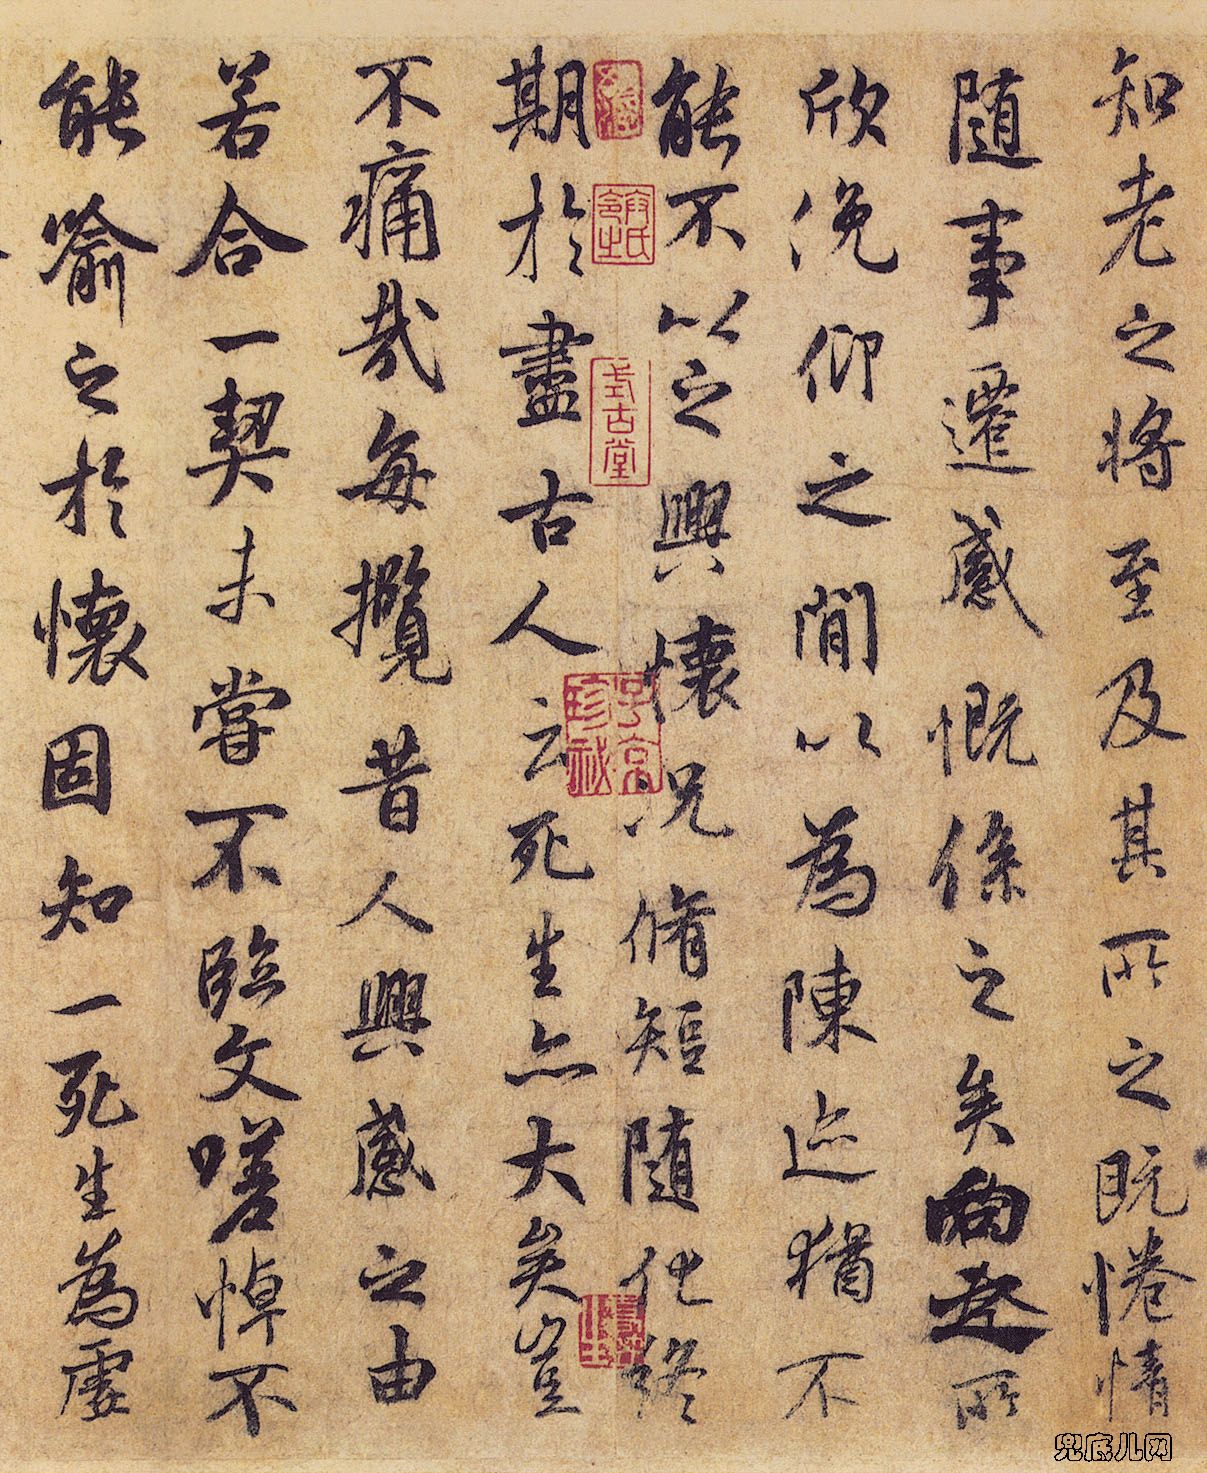 知老之将至及其所之既惓情
随事遷感慨係之矣向之所
欣俛仰之閒以為陳迹猶不
能不以之興懷况脩短随化終
期於盡古人云死生亦大矣豈
不痛哉每攬昔人興感之由
若合一契未嘗不臨文嗟悼不
能喻之於懷固知一死生為虛
式古堂
子京珍秘
兜底儿网